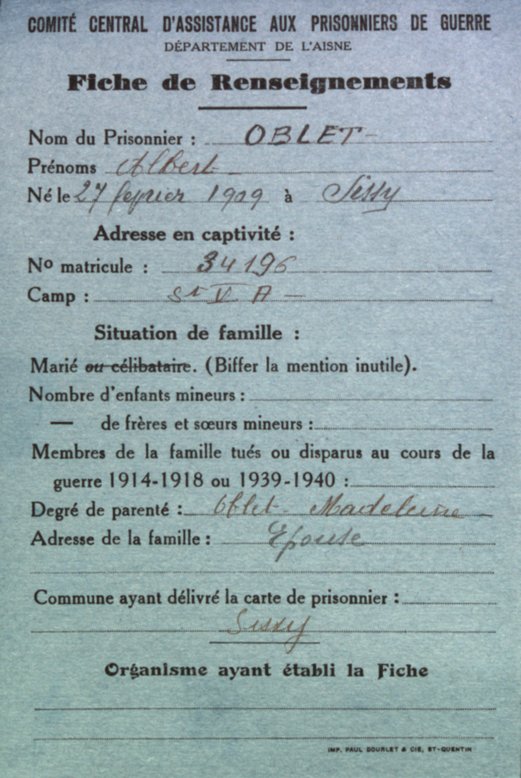 COMITÉ CENTRAL D'ASSISTANCE AUX PRISONNIERS DE GUERRE
DÉPARTEMENT DE L'AISNE
Fiche de Renseignements
Nom du Prisonnier : OBLET
Prénoms Albert
Né le 27 février 1909 à Sissy
Adresse en captivité :
No matricule : 34196
Camp : St V A
Situation de famille :
Marié ou célibataire. (Biffer la mention inutile).
Nombre d'enfants mineurs :
— de frères et sœurs mineurs :
Membres de la famille tués ou disparus au cours de la
guerre 1914-1918 ou 1939-1940 :
Degré de parenté : Oblet Madeleine
Adresse de la famille : Epouse
Commune ayant délivré la carte de prisonnier :
Sissy
Organisme ayant établi la Fiche
IMP. PAUL DOURLET & CIE, ST-QUENTIN